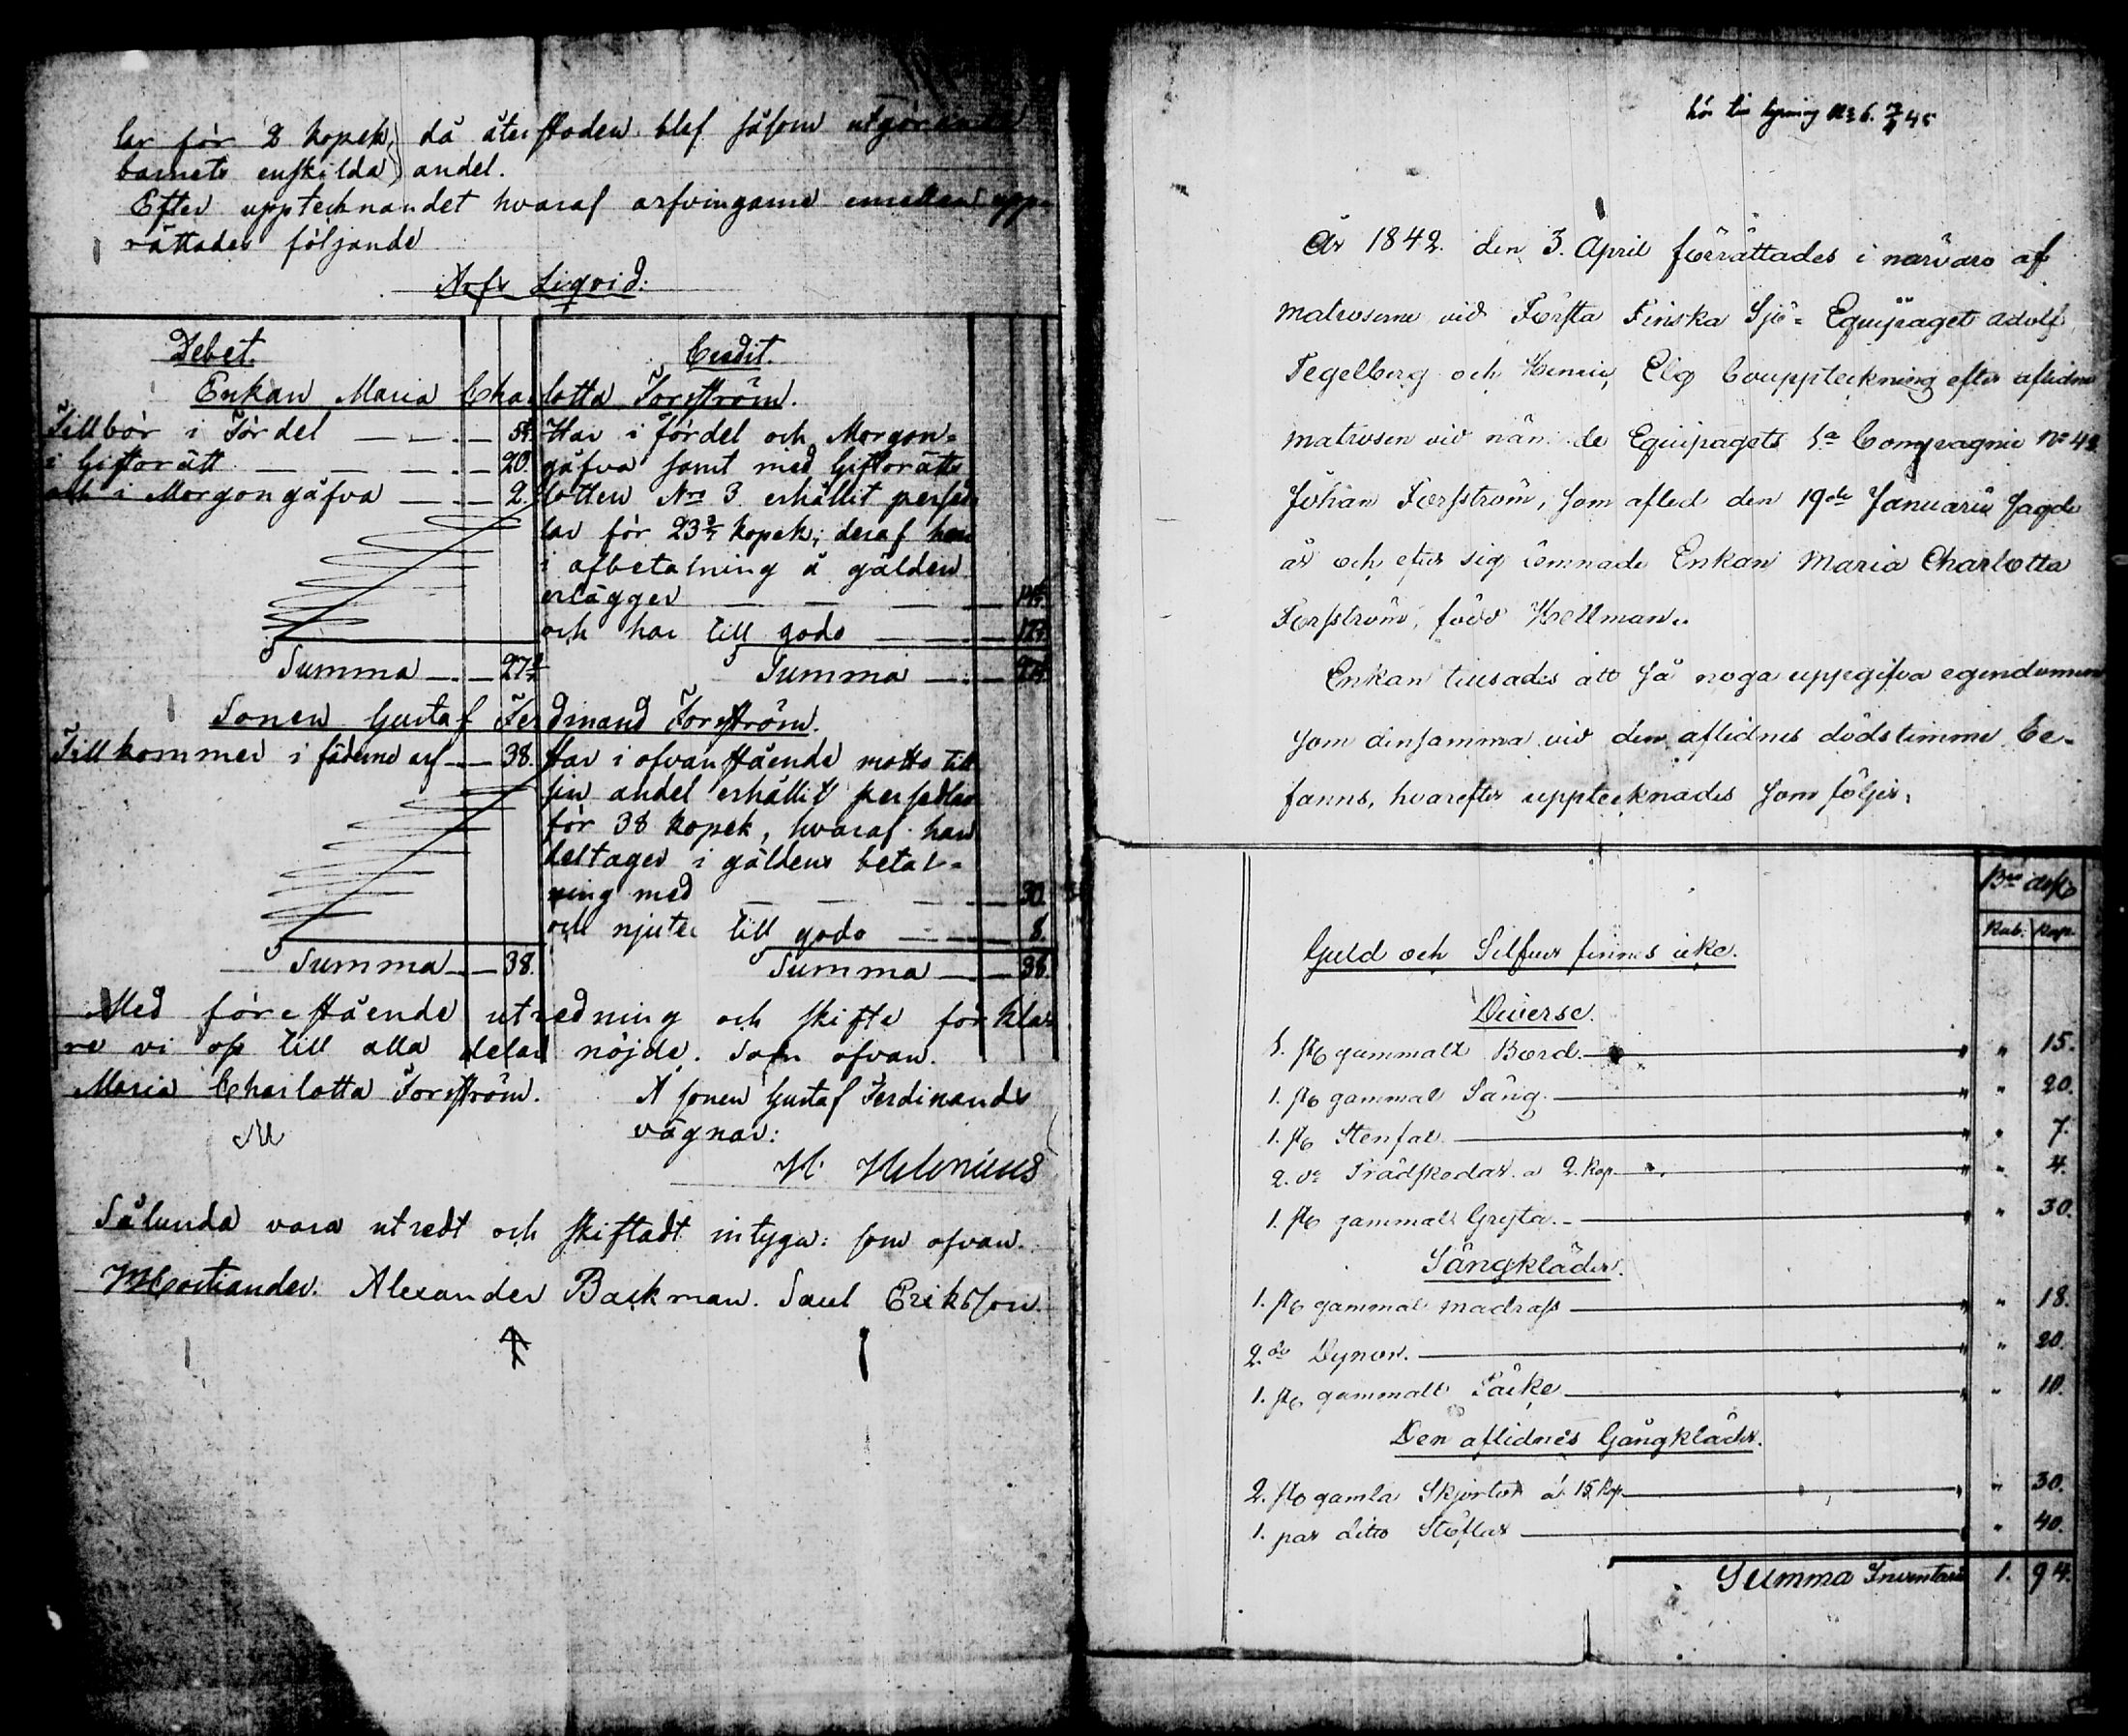 lar för 2 kopek, då återstoden blef såsom utgörande
barnets enskilda andel.
Efter upptecknandet hvaraf arfvingarne emellan upp-
rättades följande
Arfs Liqvid:
Debet. Credit.
Enkan Maria Charlotta Forsström.
Tillbör i Fördel — — — 5
i Giftorätt — — — 20
och i Morgongåfva — — 2
Summa — 27
Har i fördel och Morgon-
gåfva samt med Giftorätts
lotten Nro 3 erhållit persed-
lar för 23 kopek; deraf hon
i afbetalning å gälden
erlägger — — —
och har till godo —
Summa —
Sonen Gustaf Ferdinand Forsström.
Tillkommer i fäderne arf — 38.
Summa — 38.
Har i ofvanstående motto till
sin andel erhållit persedlar
för 38 kopek, hvaraf han
deltager i gäldens betal-
ning med — — — 30.
och njuter till godo — 8.
Summa — 38.
Med förestående utredning och skifte förkla-
re vi oss till alla delar nöjde. Som ofvan.
Maria Charlotta Forsström. Å sonen Gustaf Ferdinands
vägnar:
M H. Helenius
Sålunda vara utredt och skiftadt intyga: som ofvan.
Alexander Backman. Saul Eriksson.
hör till N: 6. 45
År 1842 den 3. April förrättades i närvaro af
Matroserne vid Första Finska Sjö-Equipaget Adolf
Tegelberg och Elg Bouppteckning efter aflidne
matrosen vid nämde Equipagets 1a Compagnie No 43
Johan Forsström, som afled den 19de Januarii sagde
år och efter sig lämnade Enkan Maria Charlotta
Forsström, född Hellman.
Enkan tillsades att så noga uppgifva egendomen
som densamma vid den aflidnes dödstimme be-
fanns, hvarefter upptecknades som följer,
Rub. Kop.
Guld och Silfver finnes icke.
Diverse.
1. st. gammalt Bord. — " 15.
1. st. gammal Säng. — " 20.
1. st. Stenfat — " 7.
2. do Trädskedar a 2. Kop — " 4.
1. st. gammal Gryta. — " 30.
Sängkläder.
1. st. gammal madrass — " 18.
2. do Dynor. — " 20.
1. st. gammalt Täcke — " 10.
Den aflidnes Gångkläder.
2. st. gamla Skjortor á 15. Kop — " 30.
1. par ditto Stöflar — " 40.
Summa Inventari 1. 94.